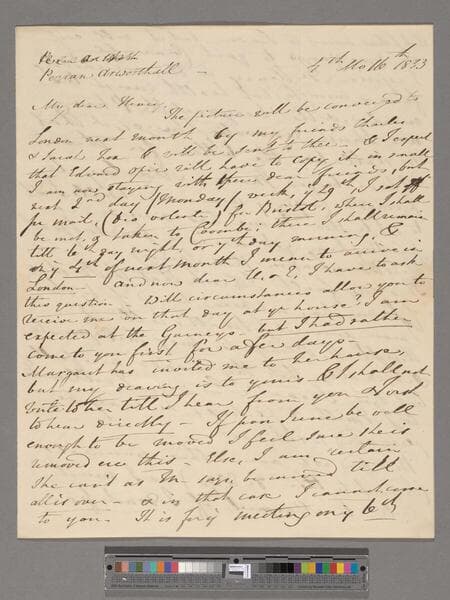 Perran Arworthall —
4th Mo 16th 1833
My dear Henry,
The picture will be conveyed to
London next month by my friends Charles
& Sarah Fox & will be sent to thee — & I expect
that Edward Opie will have to copy it in small
I am now staying with these dear friends, but
next 2nd day (Monday) week, ye 29th, I set off
pr mail, (Dio volente) for Bristol, where I shall
be met, & taken to Coombe; there I shall remain
till 6th day night or 7th day morning, &
on ye 4th of next month I mean to arrive in
London — and now dear I have to ask
this question Will circumstances allow you to
receive me on that day at yr house? I am
expected at the Gurneys — but I had rather
come to you first for a few days —
Margaret has invited me to her house,
but my leaning is to yours & I shall not
write to her till I hear from you & wish
to hear directly — If poor June be well
enough to be moved I feel sure she is
removed ere this — Else, I am certain
she can't as M— says, be moved till
all is over — & in that case I cannot come
to you — It is for ye meeting on ye 6th